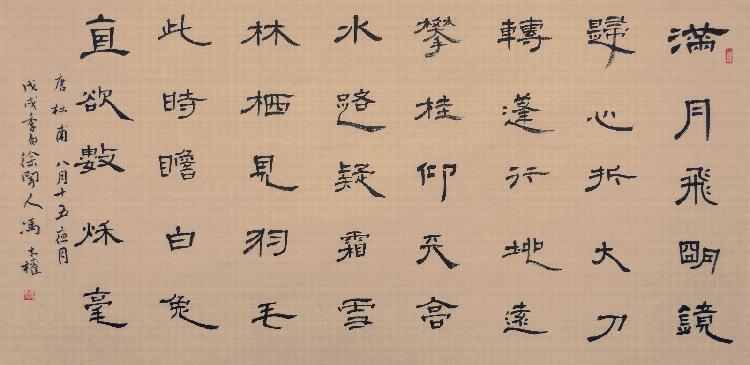 滿月飛朙鏡
歸心折大刀
轉蓬行地遠
攀桂仰天高
水路疑霜雪
林栖見羽毛
此時瞻白兔
直欲數秌毫
唐杜甫八月十五夜月
戊戌季旬徐聞人馮大權